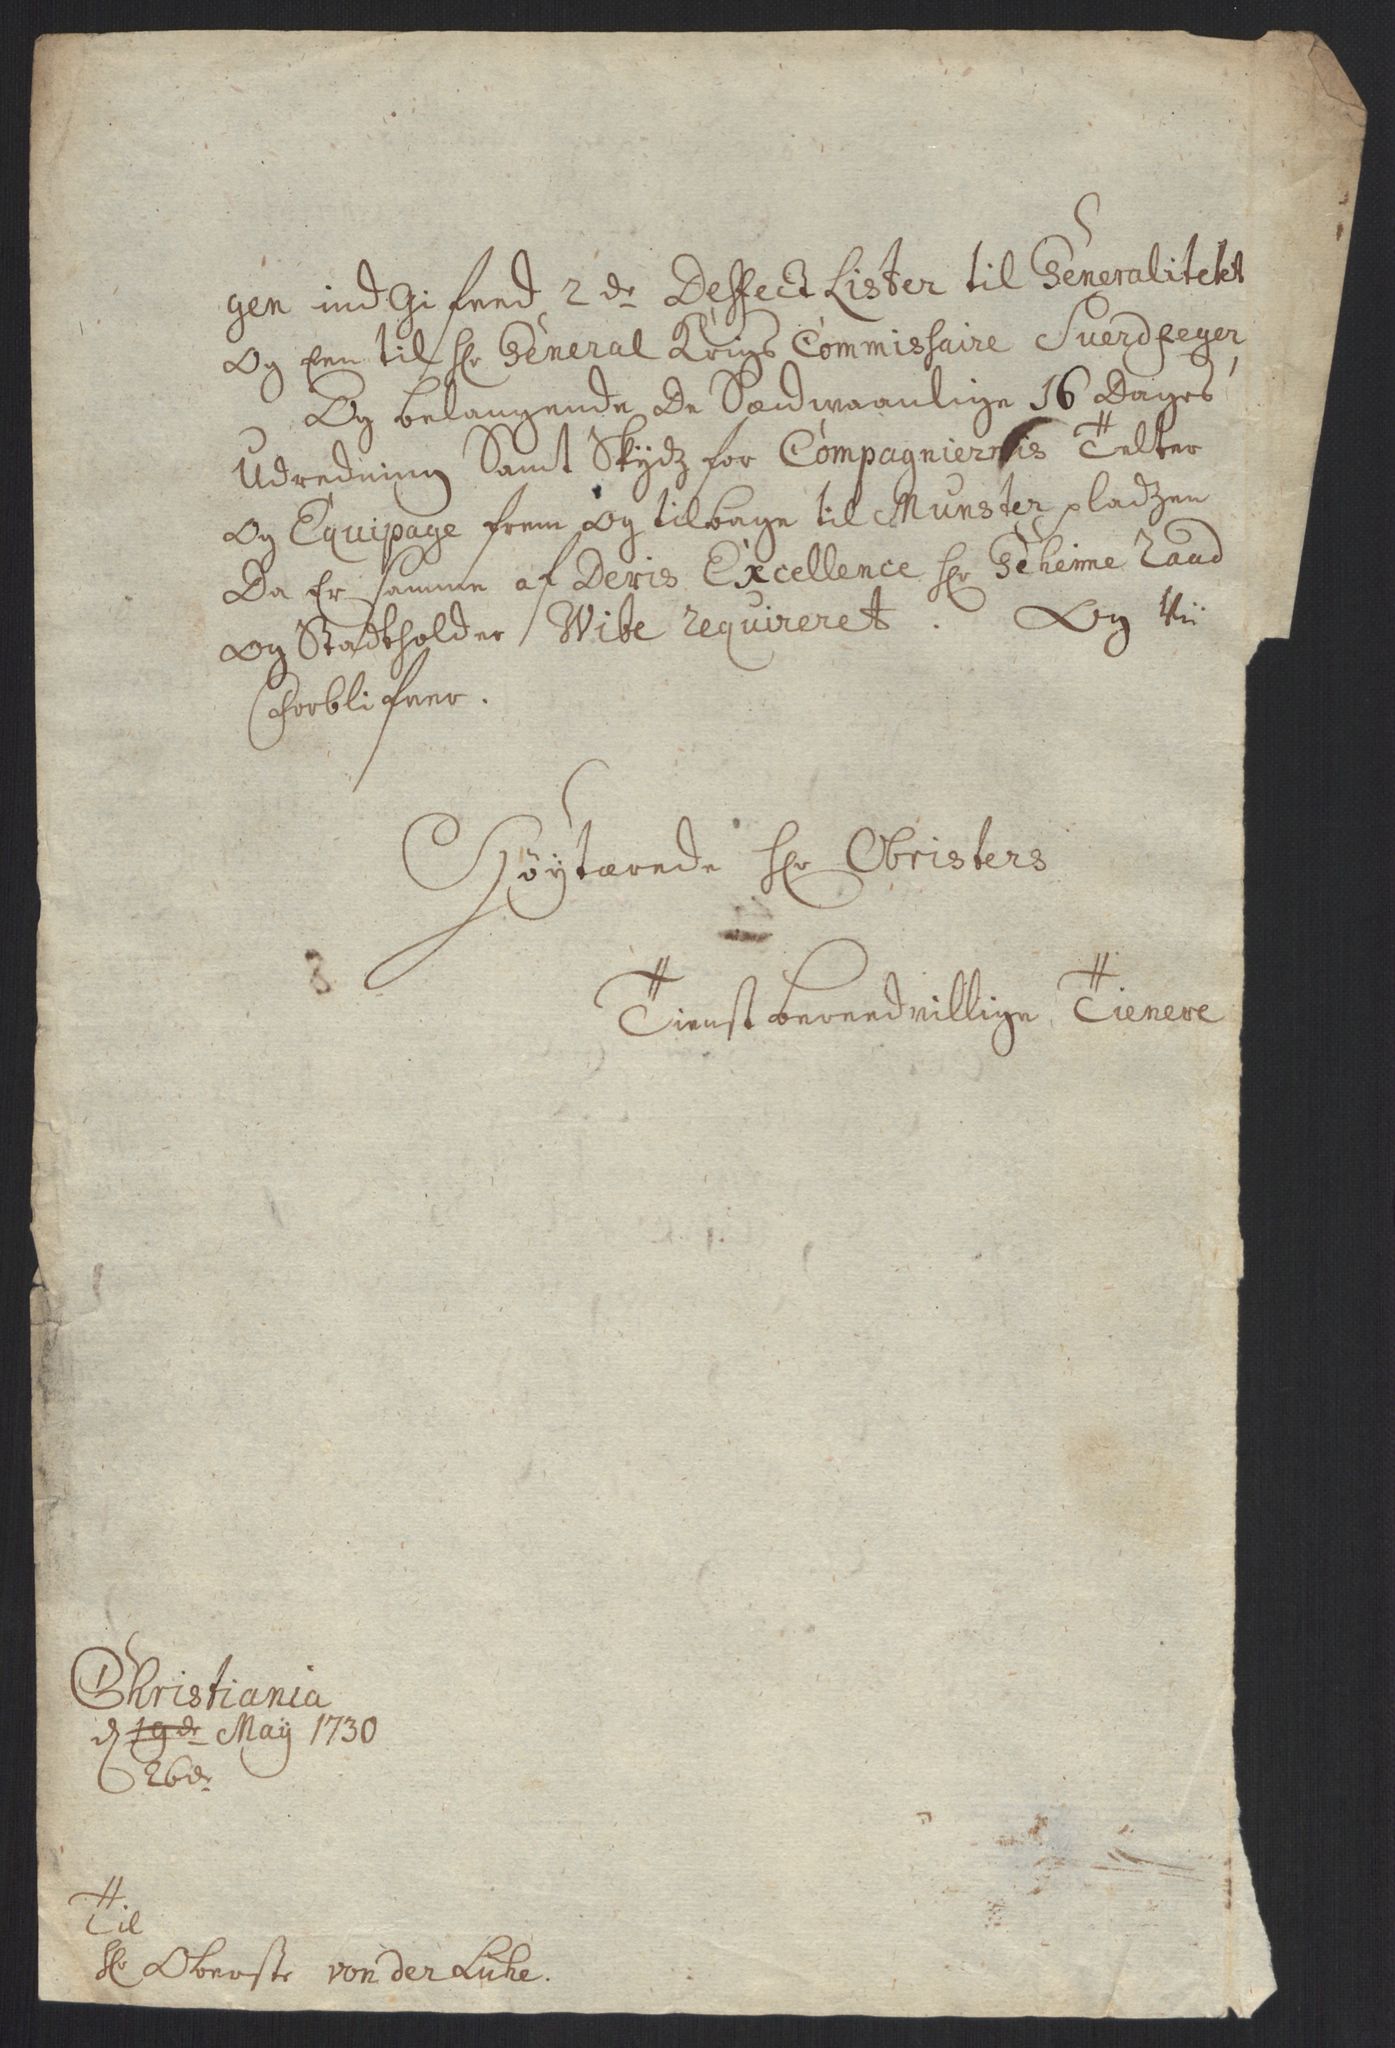 gen indgifved 2de Deffect Lister til Generalitetet
Og een til Hr General Krigs Commissaire Suerdfeger,
Og belangende De Sædwaanlige 16 Dages
Udredning Samt Skydz for Compagniernis Telter
Og Equipage frem og tilbage til Munster pladzen
Da Er samme af Deris Excellence Hr Geheime Raad
og Stadtholder Wibe requireret. Og Vii
forblifver.
Höytærede Hr Obristers
Tienstbereedvillige Tienere
Christiania
d 19de Maÿ 1730
26de
Til
Hr Oberste von der Lühe.